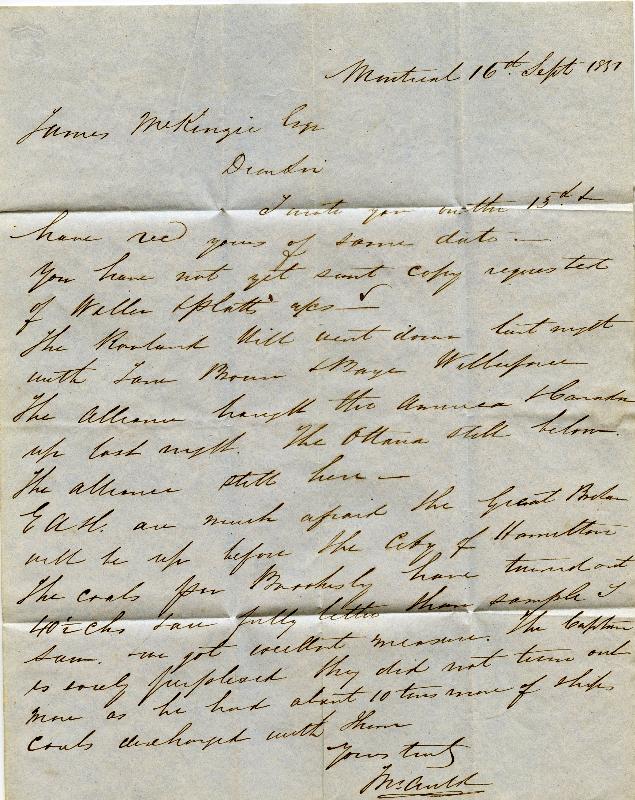 Montreal 16th Sept 1851
James McKenzie Esq
Dear Sir
I wrote you on the 15th &
have recd yours of same date —
You have not yet sent copy requested
of Waller & Platts a/cs —
The Rowland Hill went down last night
with Jane Brown & Barge Wilberforce
The Alliance brought the America & Canada
up last night. The Ottawa still below.
The Alliance still here —
E & H. are much afraid the Great Britain
will be up before the City of Hamilton
The coals per Brooksby have turned out
40½ Chs fully better than sample I
saw. we got excellent measure. The Captain
is sorely surprised they did not turn out
more as he had about 10 tons more of ships
coals discharged with them
Yours truly